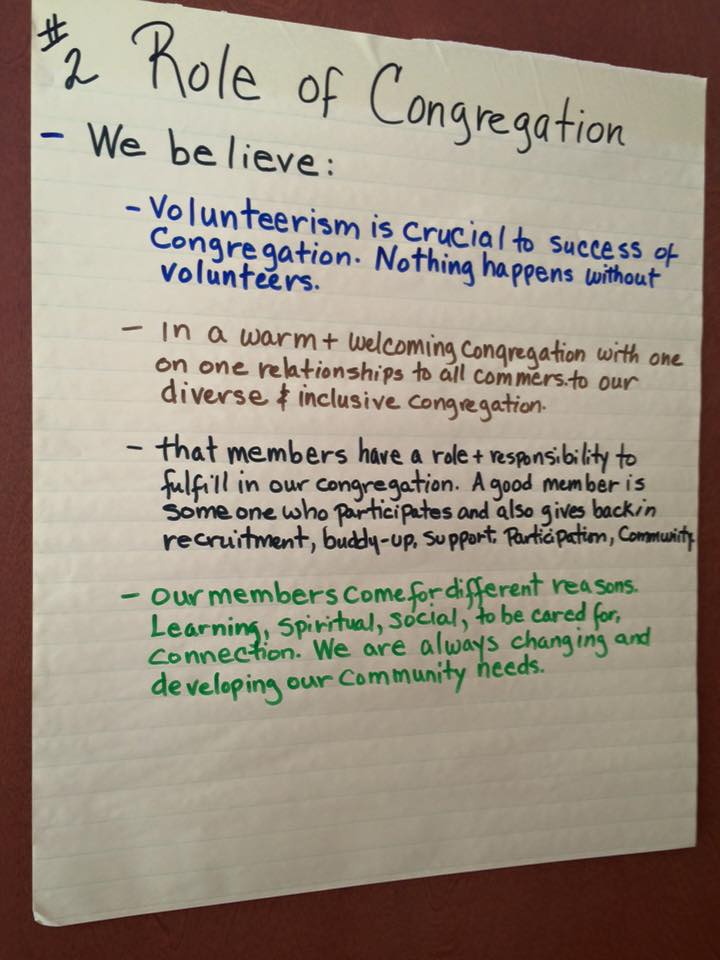 #2 Role of Congregation
- We believe:
- Volunteerism is crucial to success of
Congregation. Nothing happens without
volunteers.
- In a warm + welcoming Congregation with one
on one relationships to all commers. to our
diverse & inclusive congregation.
- that members have a role + responsibility to
fulfill in our congregation. A good member is
someone who participates and also gives back in
recruitment, buddy-up, support, Participation, Community
- Our members come for different reasons.
Learning, spiritual, social, to be cared for,
connection. We are always changing and
developing our community needs.